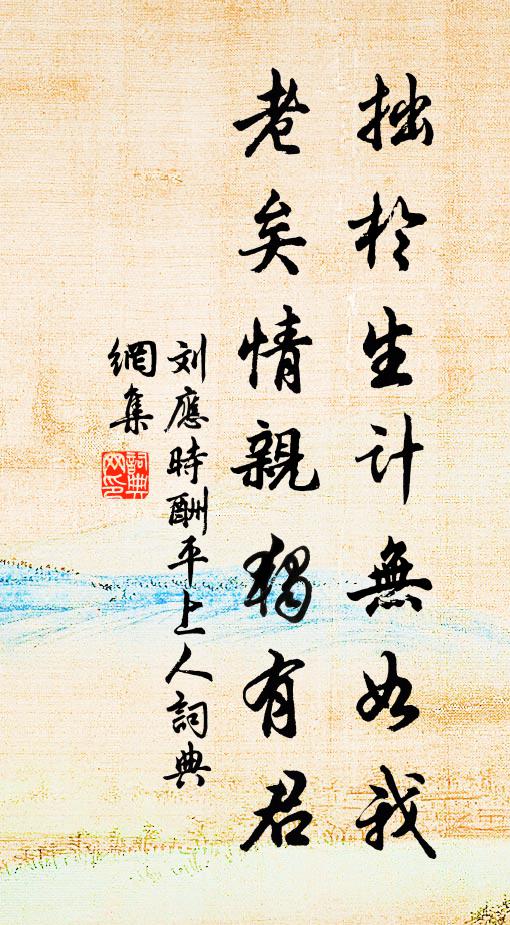 拙於生计無如我
老矣情親獨有君
刘應時酬平上人詞典
網集
詞典网印